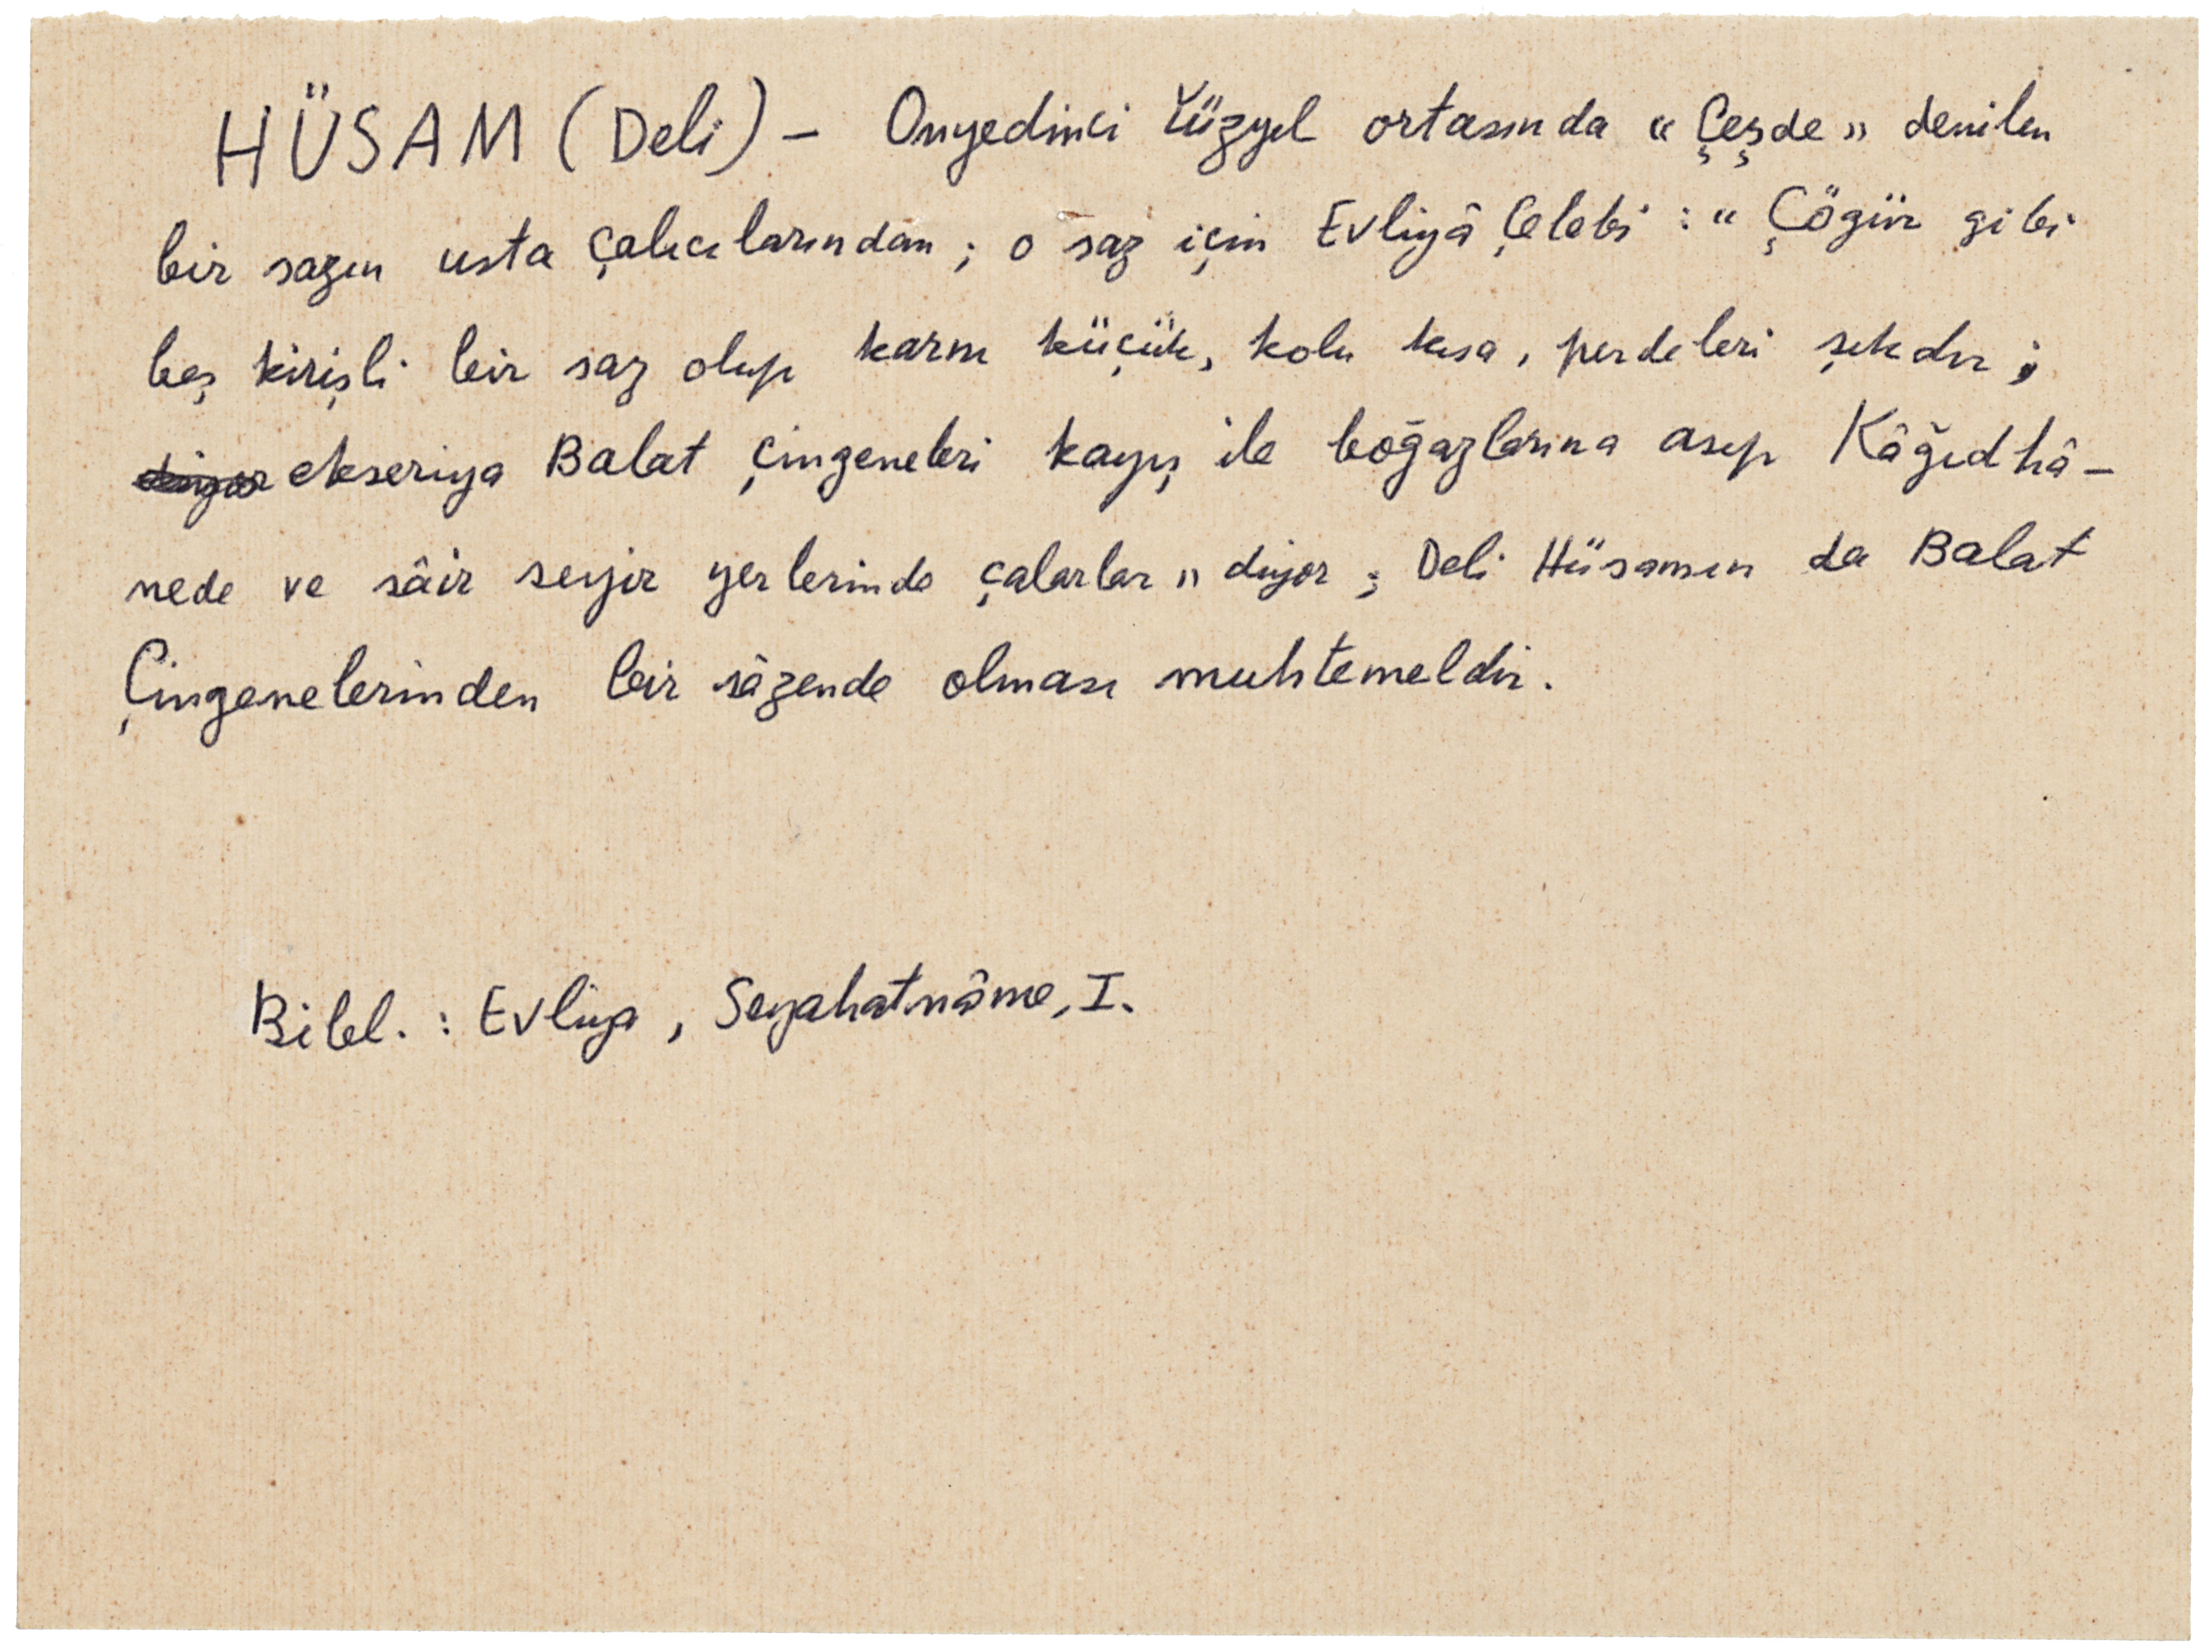 HÜSAM (Deli) — Onyedinci Yüzyıl ortasında « Çeşde » denilen
bir sazın usta çalıcılarından ; o saz için Evliyâ Çelebi : « Çögür gibi
beş kirişli bir saz olup karnı küçük, kolu kısa, perdeleri sıkdır ;
diyor ekseriya Balat çingeneleri kayış ile boğazlarına asıp Kâğıdhâ-
nede ve sâir seyir yerlerinde çalarlar » diyor ; Deli Hüsamın da Balat
Çingenelerinden bir sâzende olması muhtemeldir.
Bibl. : Evliya, Seyahatnâme, I.